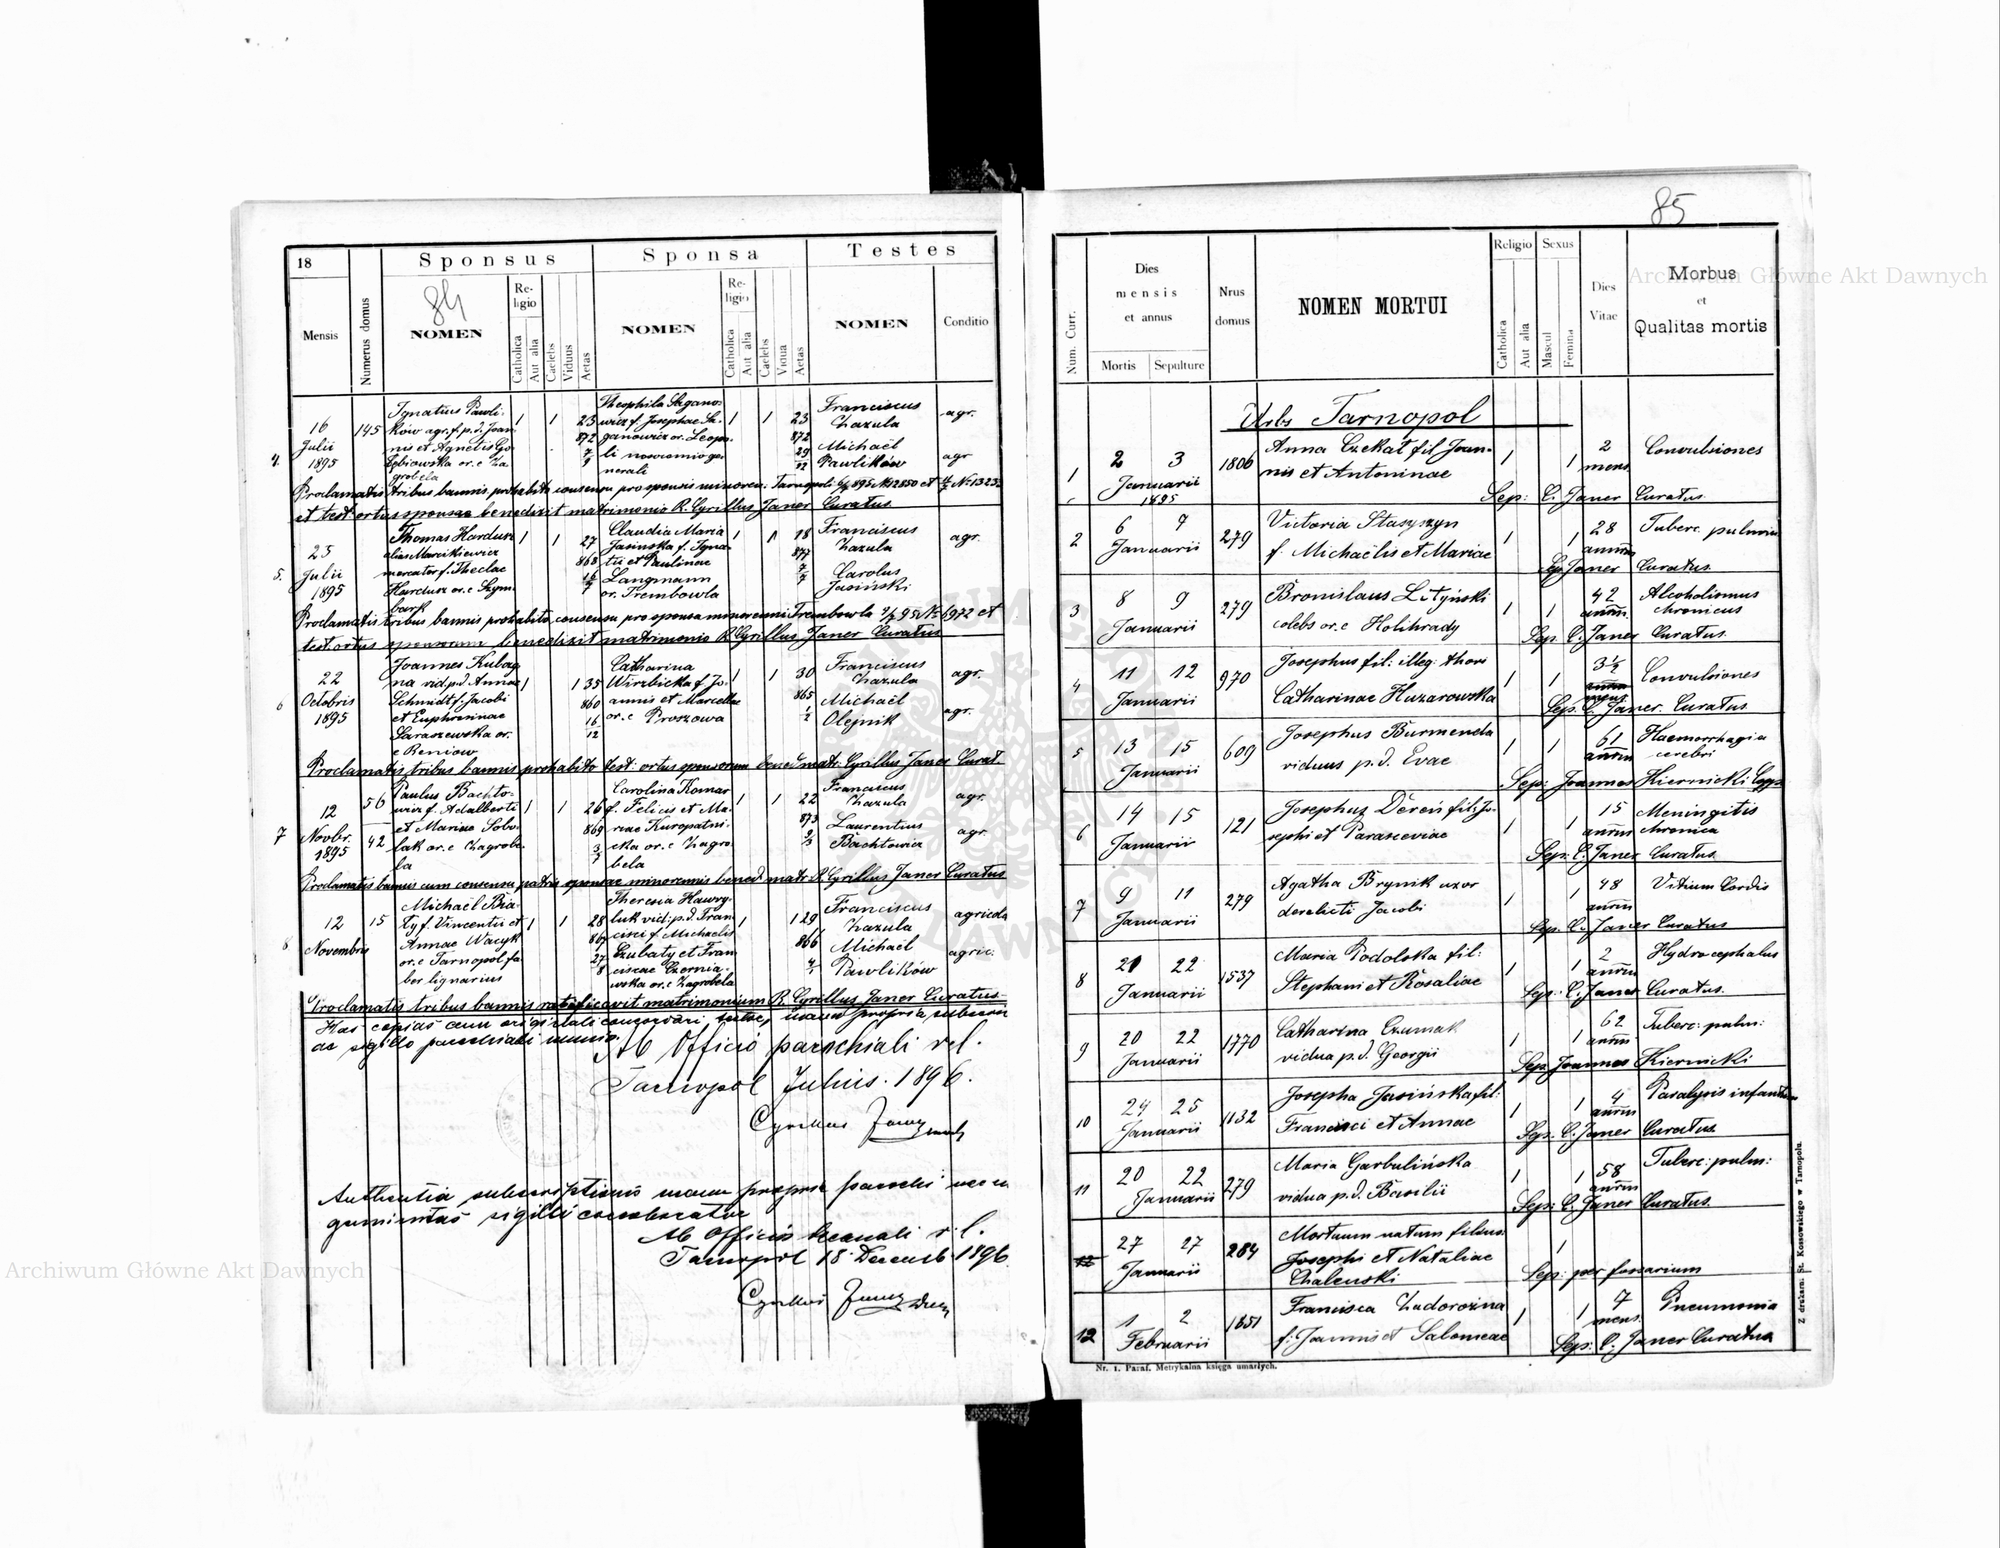 84
18
Mensis
Numerus domus
Sponsus
NOMEN
Religio
Catholica
Aut alia
Caelebs
Viduus
Aetas
Sponsa
NOMEN
Religio
Catholica
Aut alia
Caelebs
Vidua
Aetas
Testes
NOMEN
Conditio
4.
16
Julii
1895
145
Ignatius Pawli-
ków agr. f. p. d. Joan-
nis et Agnetis Go
or. e Za
grobela
1 1 23
872
1 1 23
872
Franciscus
Zazula
Michaël
Pawlików
agr.
agr
et test. ortus sponsae benedixit matrimonio R. Cyrillus Janer Curatus
5.
25
Julii
1895
Thomas Hardusz
alias Marcikiewicz
mercator f. Theclae
Hardusz or. e Szym-
bark
1 1 27
868
Claudia Maria
Jasinska f. Igna-
tii et Paulinae
Langmann
or. Trembowla
1 1 18
877
Franciscus
Zazula
Carolus
Jasiński
agr.
Proclamatis tribus bannis prohabito consensu pro sponsa minorenni Trembowla
test. ortus sponsorum benedixit matrimonio R. Cyrillus Janer Curatus
6
22
Octobris
1895
Joannes Kubag
na vid. p. d. Annae
Schmidt f. Jacobi
et Euphrosinae
Saraszewska or.
e Beniow
1 1 35
860
16
12
Catharina
Wirzbicka f. Jo-
annis et Marcellae
or. e Proszowa
1 1 30
865
Franciscus
Zazula
Michaël
Olejnik
agr.
agr.
Proclamatis tribus bannis prohabito test: ortus sponsorum bened. matr. Cyrillus Janer Curat.
7
12
Novbr.
1895
56
42
Paulus Bachto-
wicz f. Adalberti
et Mariae Sobo-
lak or. e Zagrobe-
la
1 1 26
869
Carolina Komar
f. Felicis et Ma-
riae Kuropatni-
cka or. e Zagro-
bela
1 1 22
873
Franciscus
Zazula
Laurentius
Bachtowicz
agr.
agr.
Proclamatis bannis cum consensu patris sponsae minorennis bened. matr. R. Cyrillus Janer Curatus
8
12
Novembris
15
Michaël Bia-
ty f. Vincentii et
Annae Wacyk
or. e Tarnopol fa-
ber lignarius
1 1 28
867
27
8
Theresia Hawry-
luk vid: p. d. Fran-
cisci f. Michaelis
Czubaty et Fran
ciscae Czernia-
wska or. e Zagrobela
1 1 29
866
Franciscus
Zazula
Michaël
Pawlików
agricola
agric:
Proclamatis tribus bannis ratificavit matrimonium R. Cyrillus Janer Curatus
Has copias cum originali concordari testor, manu propria subscri
ac sigillo parochiali munio.
Ab Officio parochiali r. l.
Tarnopol Julius. 1896.
Cyrillus Janer
manu propria parochi
sigilli
Ab Officio decanali r. l.
Tarnopol 18 Decemb 1896
Cyrillus Janer
85
Num. Curr.
Dies
mensis
et annus
Mortis
Sepulture
Nrus
domus
NOMEN MORTUI
Religio
Catholica
Aut alia
Sexus
Mascul
Femina
Dies
Vitae
Morbus
et
Qualitas mortis
Urbs Tarnopol
1
2 3
Januarii
1895
1806
Anna Czekał fil Joan-
nis et Antoninae
1 1
2
mens
Convulsiones
Sep: C. Janer Curatus
2
6 7
Januarii
279
Victoria Stasyszyn
f. Michaëlis et Mariae
1 1
28
annm
Tuberc. pulmon
Sep Janer Curatus
3
8 9
Januarii
279
Bronislaus Lityński
celebs or. e Holihrady
1 1
42
annm.
Alcoholismus
chronicus
Sep. C. Janer Curatus
4
11 12
Januarii
970
Josephus fil: illeg: thori
Catharinae Huzarowska
1 1
3½
mens
Convulsiones
Sep. C. Janer. Curatus
5
13 15
Januarii
609
Josephus Burmenda
viduus p. d. Evae
1 1
61
annm
Haemorrhagia
cerebri
Sep: Joannes Kiernicki Copp.
6
14 15
Januarii
121
Josephus Dereń fil: Jo-
sephi et Parasceviae
1 1
15
annm
Meningitis
chronica
Sep: C. Janer Curatus
7
9 11
Januarii
279
Agatha Brynik uxor
derelicti Jacobi
1 1
48
annm
Vitium Cordis
Sep. C. Janer Curatus
8
21 22
Januarii
1537
Maria Podolska fil:
Stephani et Rosaliae
1 1
2
annm
Hydrocephalus
Sep: C. Janer Curatus.
9
20 22
Januarii
1770
Catharina Czumak
vidua p. d. Georgii
1 1
62
annm
Tuberc: pulm:
Sep. Joannes Kiernicki
10
24 25
Januarii
1132
Josepha Jasińska fil:
Francisci et Annae
1 1
4
annm
Paralysis infantum
Sep: C. Janer Curatus
11
20 22
Januarii
279
Maria Garbulińska
vidua p. d. Basilii
1 1
58
annm
Tuberc: pulm:
Sep: C. Janer Curatus.
12
27 27
Januarii
284
Mortuum natum filius
Josephi et Nataliae
Chalenski
1
Sep: per fossarium
12
1 2
Februarii
1851
Francisca Zadorożna
f: Joannis et Salomeae
1 1
7
mens.
Pneumonia
Sep. C. Janer Curatus
Nr. 1. Paraf. Metrykalna księga umarłych.
Z drukarni St. Kossowskiego w Tarnopolu.
Archiwum Główne Akt Dawnych
Archiwum Główne Akt Dawnych